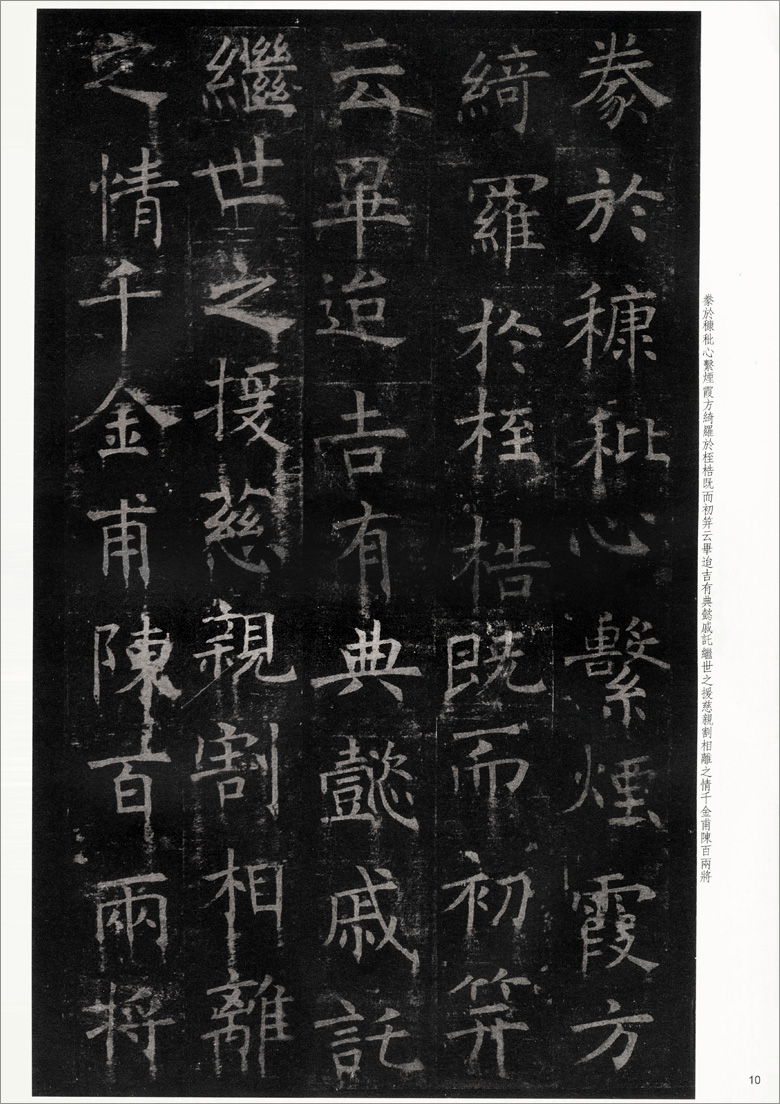 豢於穅秕心繫煙霞方
綺羅於桎梏既而初笄
云畢迨吉有典懿戚託
繼世之援慈親割相離
之情千金甫陳百兩将
豢於穅秕心繫煙霞方綺羅於桎梏既而初笄云畢迨吉有典懿戚託繼世之援慈親割相離之情千金甫陳百兩將
10